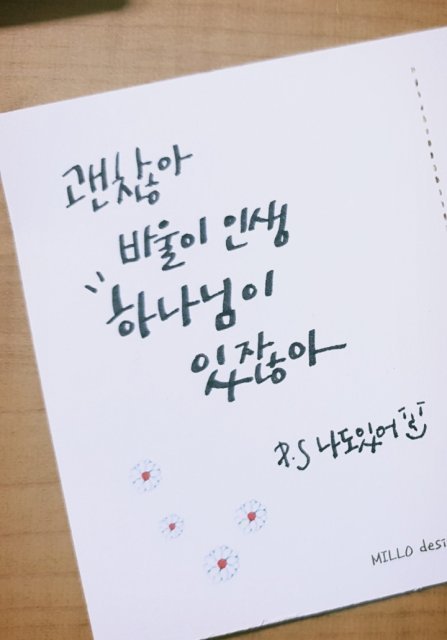 괜찮아
바울이 인생
하나님이
있잖아
P.S 나도있어
MILLO desi